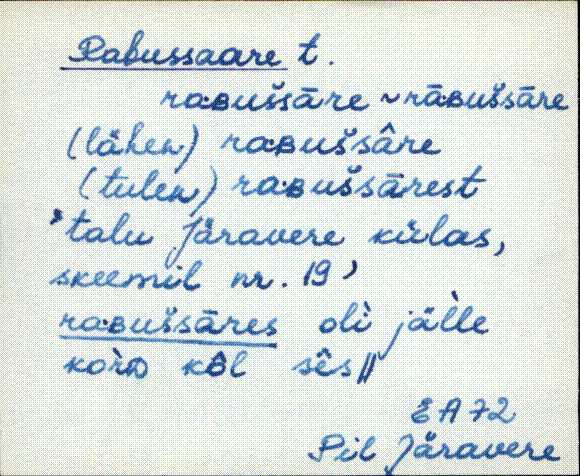 Rabussaare t.
ra·ʙušsāre ~ rāʙušsāre
(lähen) ra·ʙušsâre
(tulen) ra·ʙušsārest
'talu Järavere külas,
skeemil nr. 19'
ra·ʙušsāres oli jälle
sês ||
EA 72
Pil Järavere